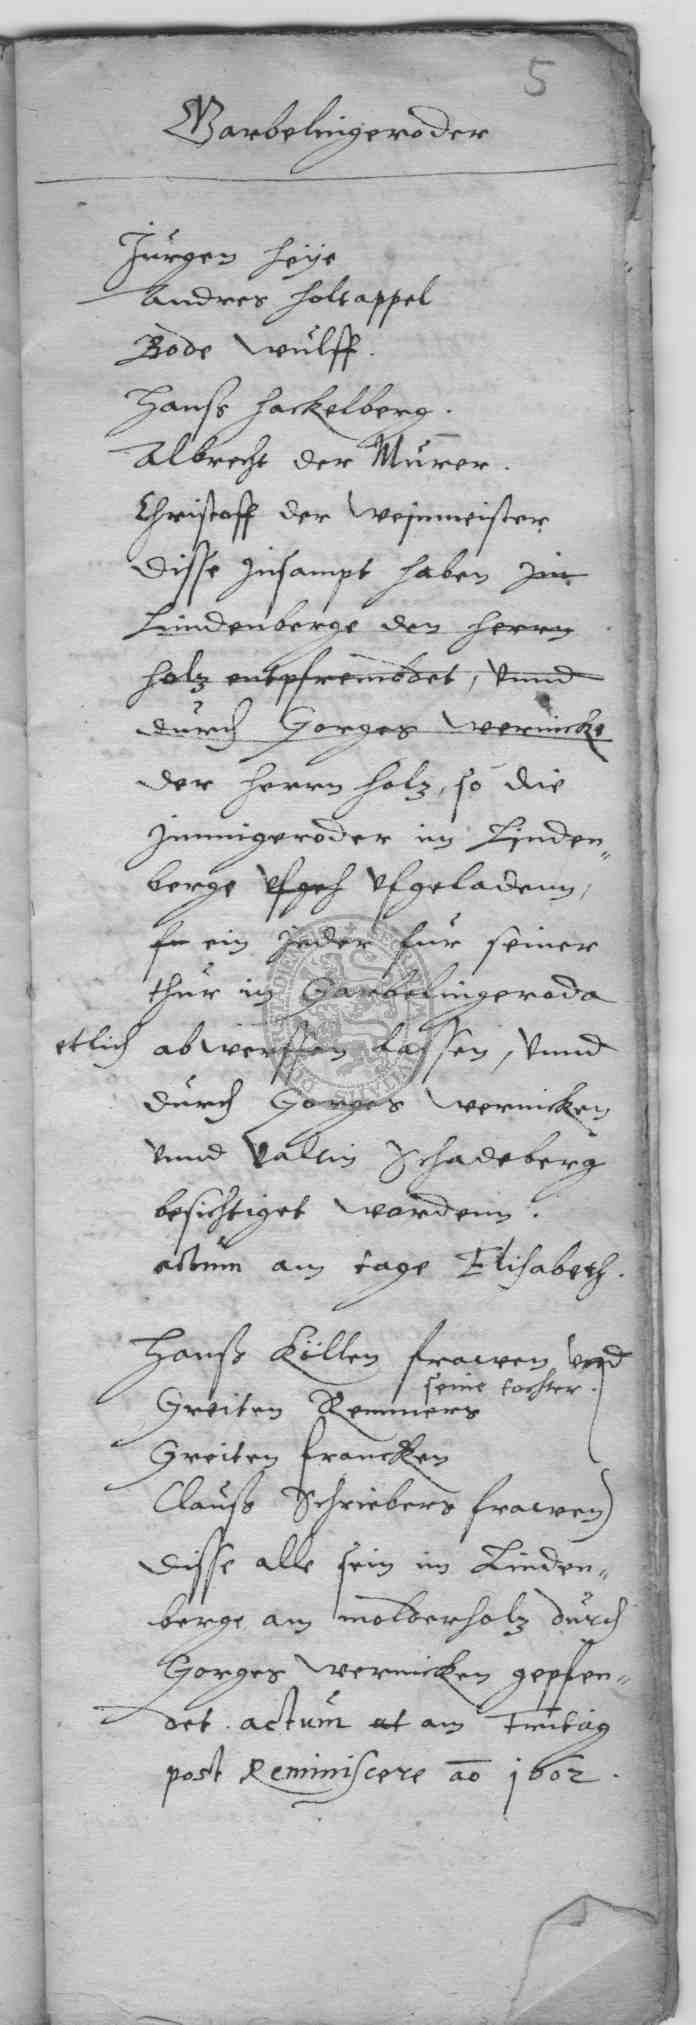 5
Garbelingeroder
Jürgen Heije
Andres Holtappel
Bode Wulff.
Hanß Hackelberg.
Albrecht der Mürer.
Christoff der Weinmeister
disse zusampt haben Im
Lindenberge den herrn
holz entpfrembdet, vnnd
durch Gorges Wernicke
der herrn holz, so die
Junnigeroder im Linden„
berge vfgeh vfgeladenn,
fu ein jeder für seiner
thür in Garbelingeroda
etlich abwerffen lassen, vnnd
durch Gorges Wernicken
vnnd Valtin Schadeberg
besichtiget wordenn.
actum am tage Elisabeth.
Hanß Köllen frawen vnd
seine tochter.
Greiten Remmers
Greiten Francken
Clauß Schriebers frawen
disse alle sein im Linden„
berge am molderholz durch
Gorges Wernicken gepfen„
det. actum at am Freitag
post Reminiscere ao 1602.